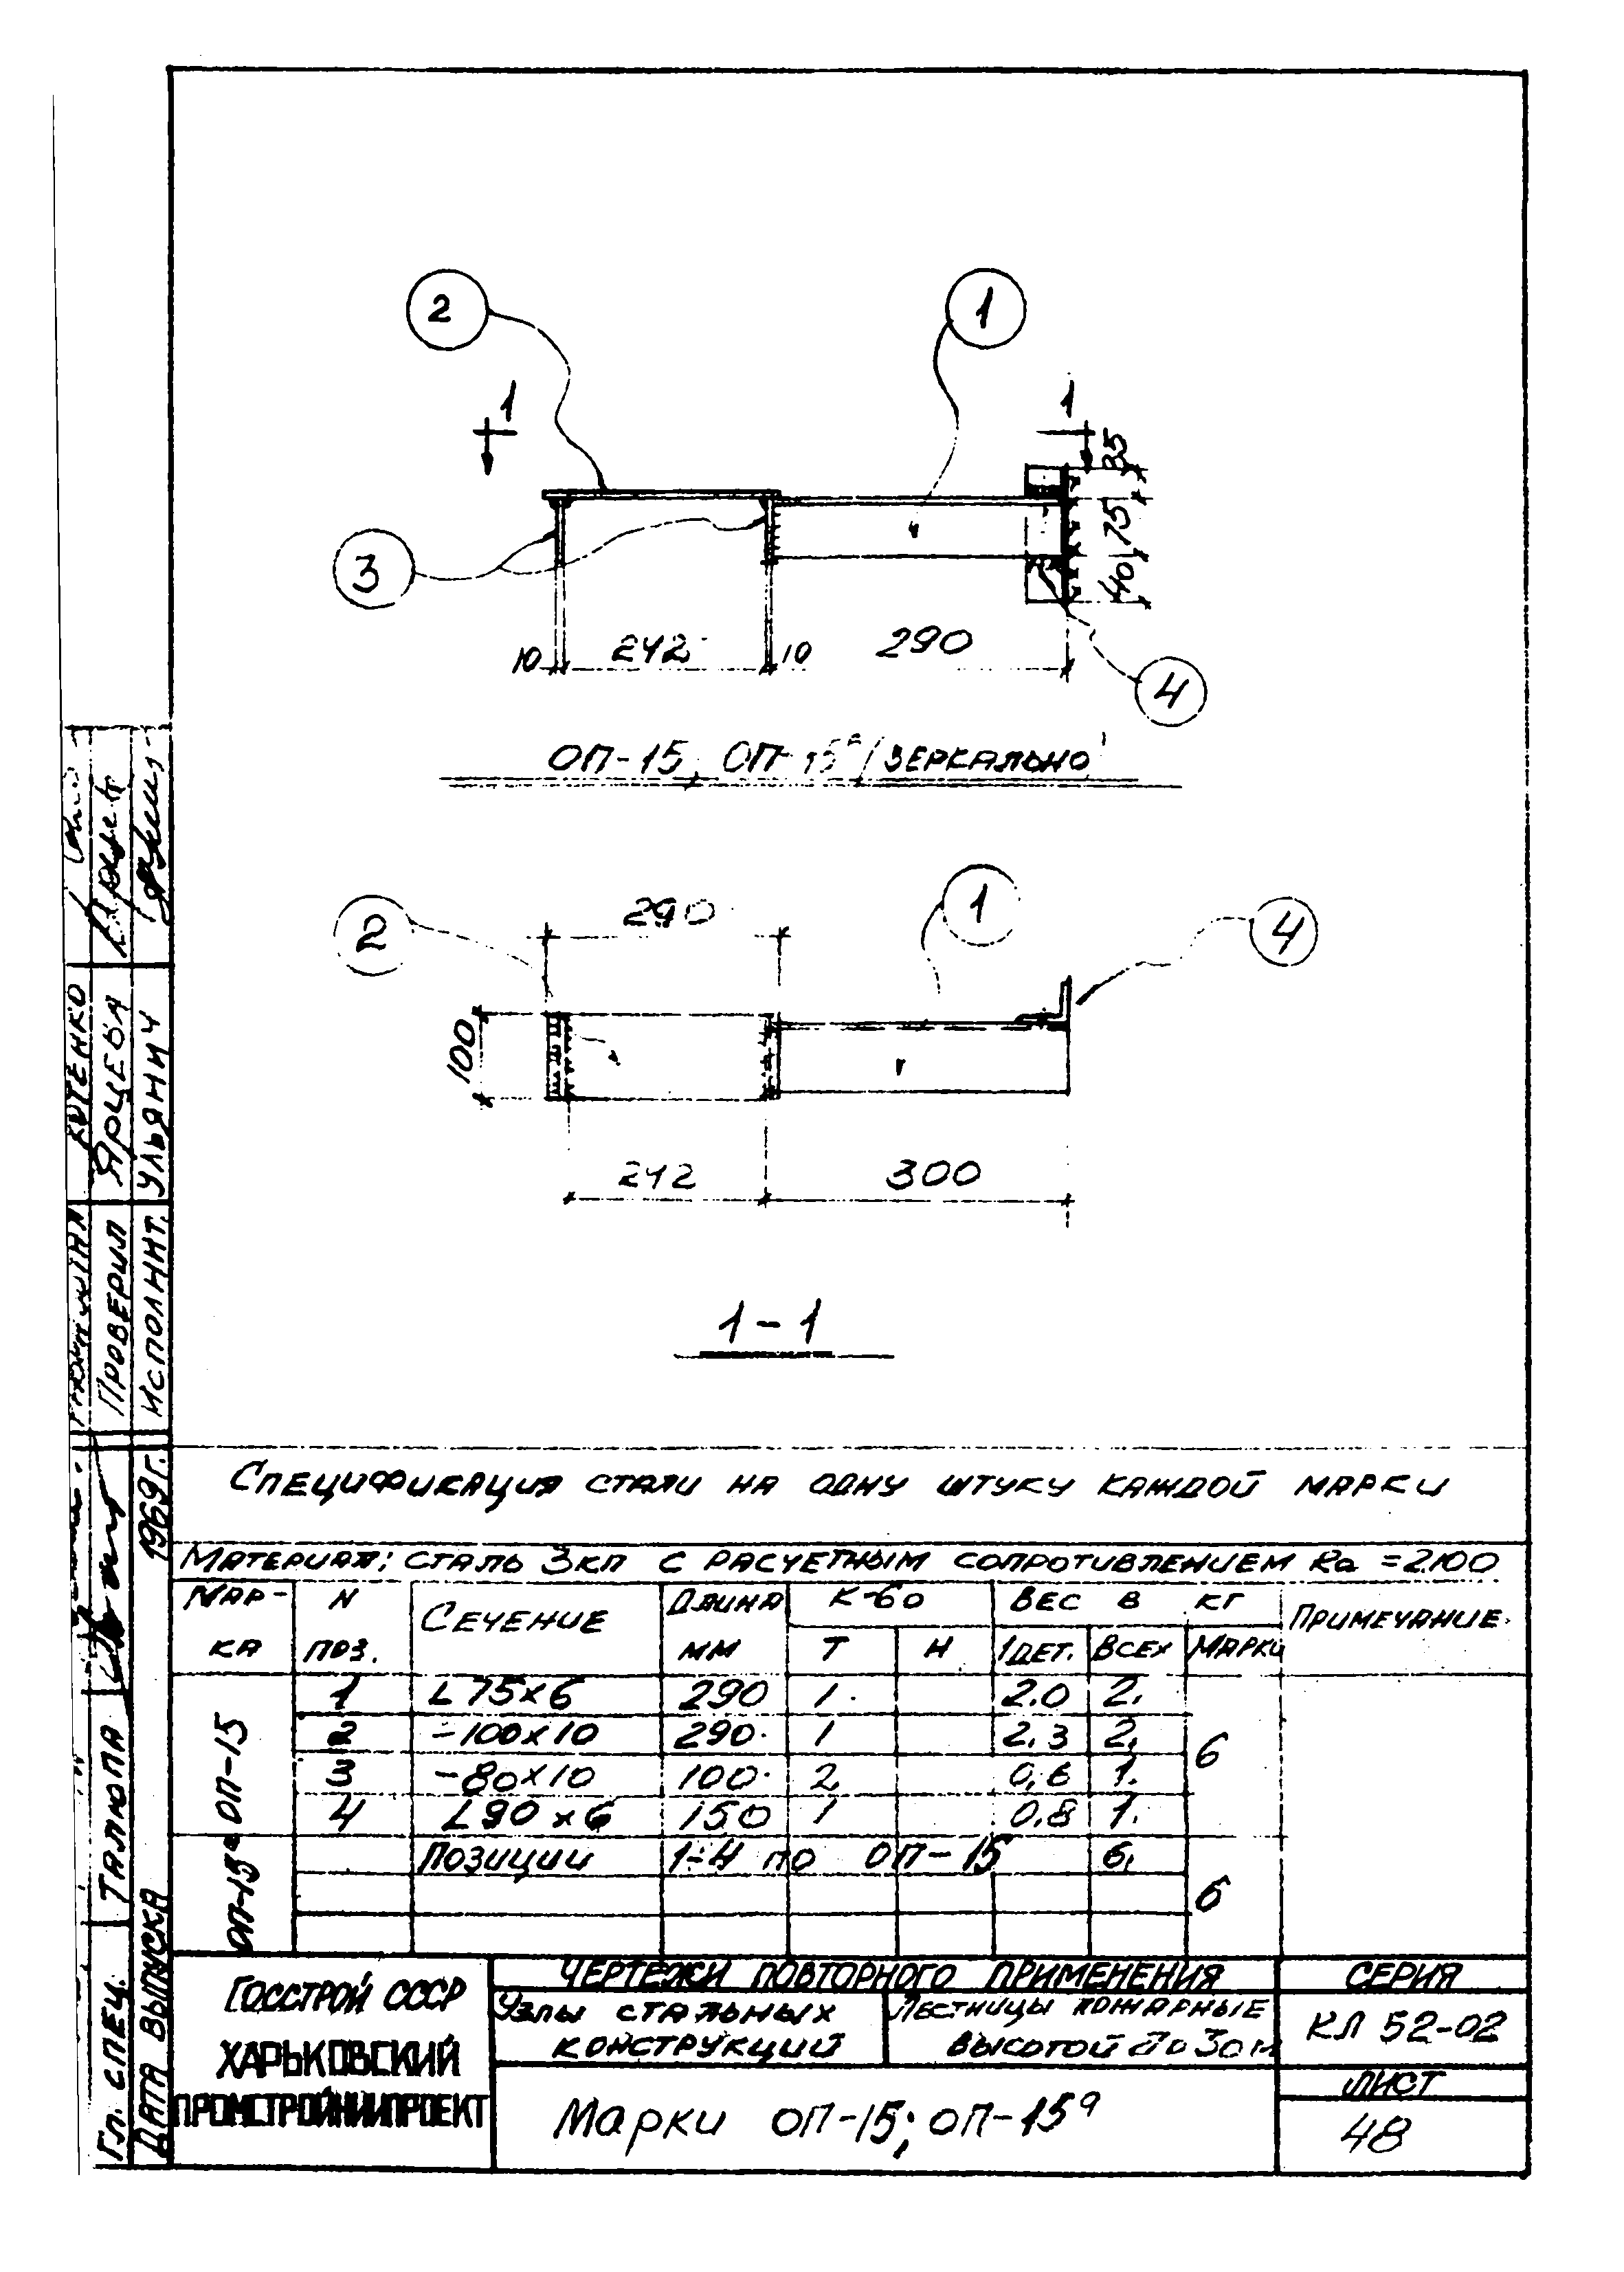 2
1
1
1
35
75
40
3
10
242
10
290
4
ОП-15; ОП-15ᵃ /ЗЕРКАЛЬНО/
290
2
1
4
100
242
300
1-1
СПЕЦИФИКАЦИЯ СТАЛИ НА ОДНУ ШТУКУ КАЖДОЙ МАРКИ
МАТЕРИАЛ: СТАЛЬ 3КП С РАСЧЕТНЫМ СОПРОТИВЛЕНИЕМ Ra = 2100
МАР- N СЕЧЕНИЕ ДЛИНА К-ВО ВЕС В КГ ПРИМЕЧАНИЕ
КА ПОЗ. ММ Т Н 1ДЕТ. ВСЕХ МАРКИ
ОП-15
1 L75×6 290 1 2.0 2.
2 -100×10 290 1 2.3 2.
6
3 -80×10 100 2 0,6 1.
4 L90×6 150 1 0,8 1.
ОП-15ᵃ
ПОЗИЦИИ 1-4 ПО ОП-15 6.
6
ГОССТРОЙ СССР
ХАРЬКОВСКИЙ
ПРОМСТРОЙНИИПРОЕКТ
ЧЕРТЕЖИ ПОВТОРНОГО ПРИМЕНЕНИЯ
УЗЛЫ СТАЛЬНЫХ
КОНСТРУКЦИЙ
ЛЕСТНИЦЫ ПОЖАРНЫЕ
ВЫСОТОЙ ДО 30 М
СЕРИЯ
КЛ 52-02
Марки ОП-15; ОП-15ᵃ
ЛИСТ
48
ПРОВЕРИЛ ЯРЦЕВА
ИСПОЛНИТ. УЛЬЯНИЧ
ГЛ. СПЕЦ. ТАЛЮПА
ДАТА ВЫПУСКА 1969г.